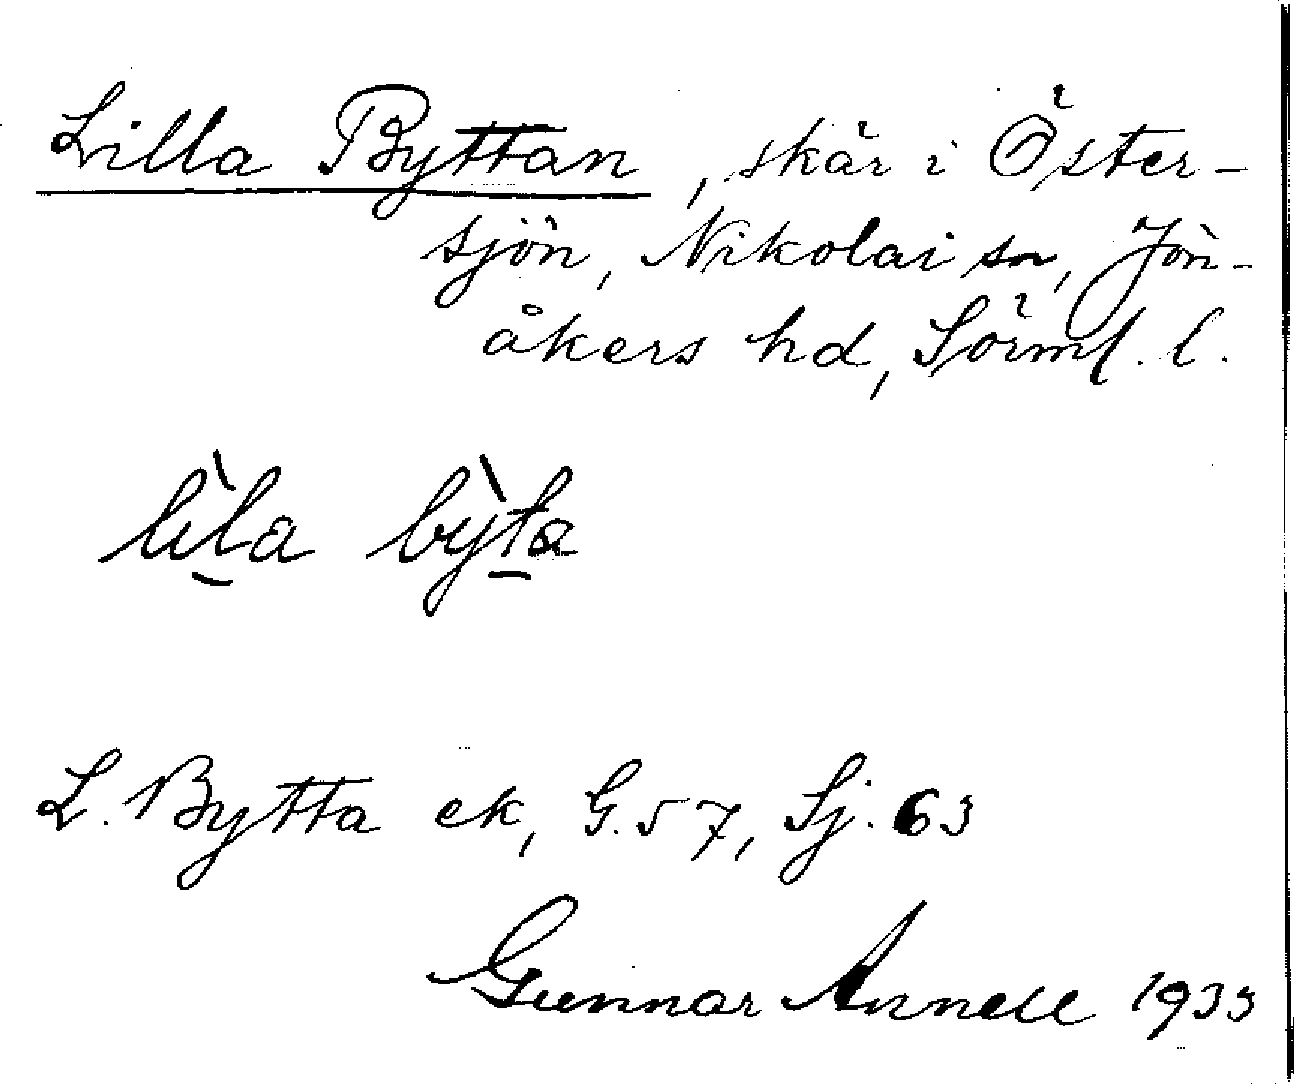 Lilla Byttan, skär i Öster-
sjön, Nikolai sn, Jön-
åkers hd, Sörml. l.
lìla bỳta
L. Bytta ek, G. 57, Sj. 63
Gunnar Annell 1933